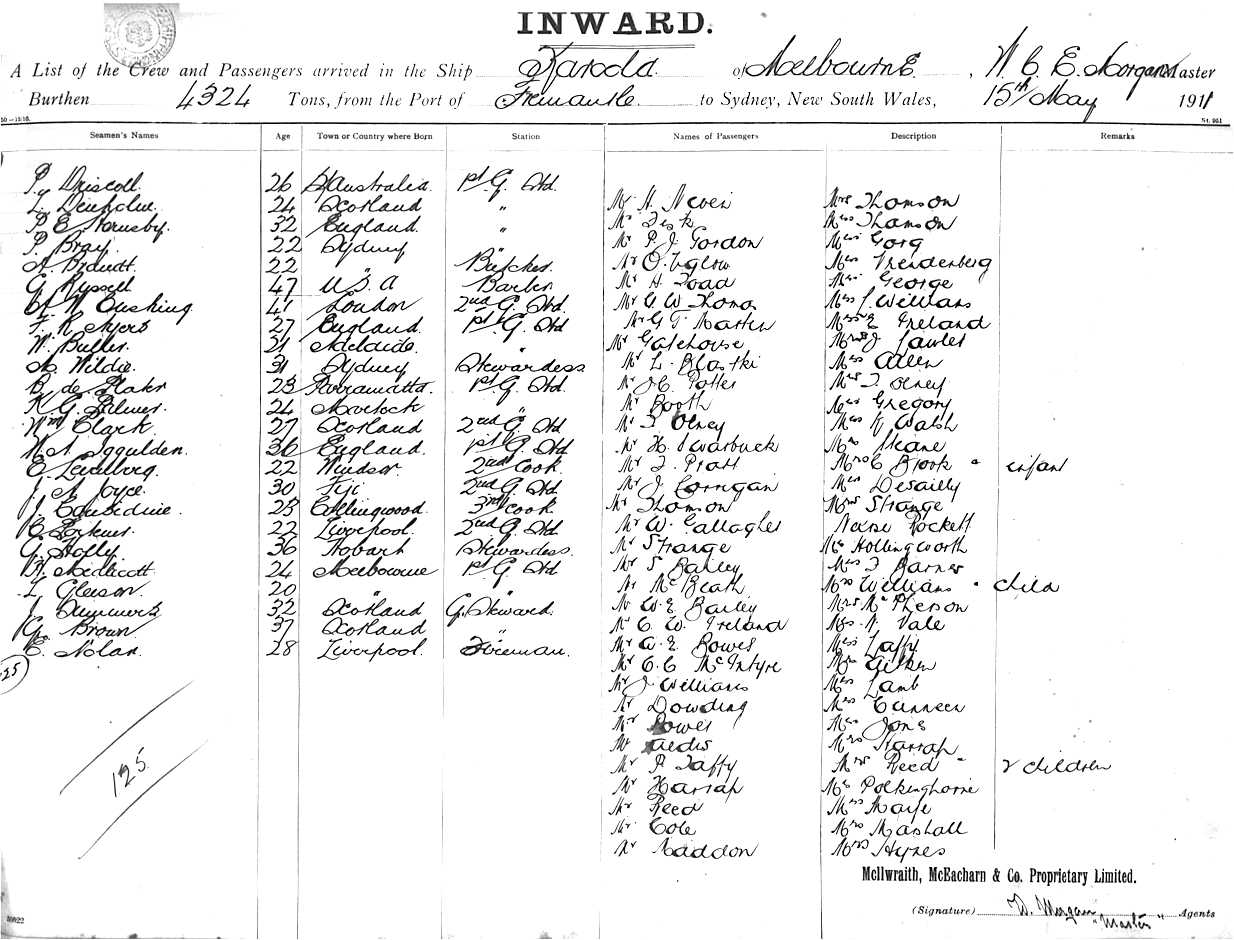 INWARD.
A List of the Crew and Passengers arrived in the Ship Karoola of Melbourne, W. C. E. Morgan Master
Burthen 4324 Tons, from the Port of Fremantle to Sydney, New South Wales, 15th May 1911
Seamen's Names Age Town or Country where Born Station Names of Passengers Description Remarks
P. Driscoll 26 Australia 1st G. Std
24 Scotland " Mr H. Neven Mrs Thomson
P. E. Hornsby. 32 England " Mr Fisk Miss Thomson
P. Bray. 22 Sydney " Mr P. J. Gordon Miss Gorg
A. Brandt. 22 " Butcher Mr O. Uglow Miss Vreudenberg
G. Russell 47 U.S.A Barber Mr H Toad Miss George
W. Cushing 41 London 2nd G. Std Mr C W Thomas Miss J. Williams
F. R. Myers 27 England 1st G. Std Mr G T Martin Miss E Ireland
W. Butler. 21 Adelaide. " Mr Gatehouse Mrs J Lawler
A. Wildie. 31 Sydney Stewardess Mr L. Blaski Miss Allen
B. de 23 Parramatta. 1st G. Std Mr J C Potter Mrs I Olney
R. G. 24 " Mr Booth Miss Gregory
Wm Clark. 27 Scotland 2nd G. Std Mr I Olney Miss K Walsh
W. A. Iggulden. 36 England. 1st G. Std Mr H. Swarbuck Mrs Keane
E. 22 Windsor 2nd Cook Mr I. Pratt Mrs C Brook " infant
J. A Joyce. 30 Fiji 2nd G. Std Mr J. Corrigan Miss Desailly
J. Considine. 23 Collingwood. 3rd Cook Mr Thomson Mrs Strange
22 Liverpool. 2nd G. Std Mr W. Gallagher Nurse Pockett
G. Holly. 36 Hobart Stewardess. Mr Strange Mrs Hollingworth
Medlicott 24 Melbourne 1st G. Std Mr S Bailey Miss I Barnes
L Gleeson. 20 " " Mr McBeath Mrs Williams " child
J. 32 Scotland G. Steward. Mr W. E. Bailey Mrs McPherson
Brown 37 Scotland " Mr C W. Ireland Miss N. Vale
E. Nolan. 28 Liverpool. Fireman. Mr W. E Bowes Miss Laffy
25 Mr C. C McIntyre Mrs Aitken
Mr J Williams Miss Lamb
Mr Dowding Miss Cunneen
Mr Miss Jones
Mr Mrs Harrap
125. Mr P Taffy Mrs Reed " 2 children
Mr Harrap Mrs Polkinghorne
Mr Reed Miss Maye
Mr Cole Mrs Mashall
Mr Maddon Mrs Hynes
McIlwraith, McEacharn & Co. Proprietary Limited.
(Signature) W. Morgan "Master" Agents